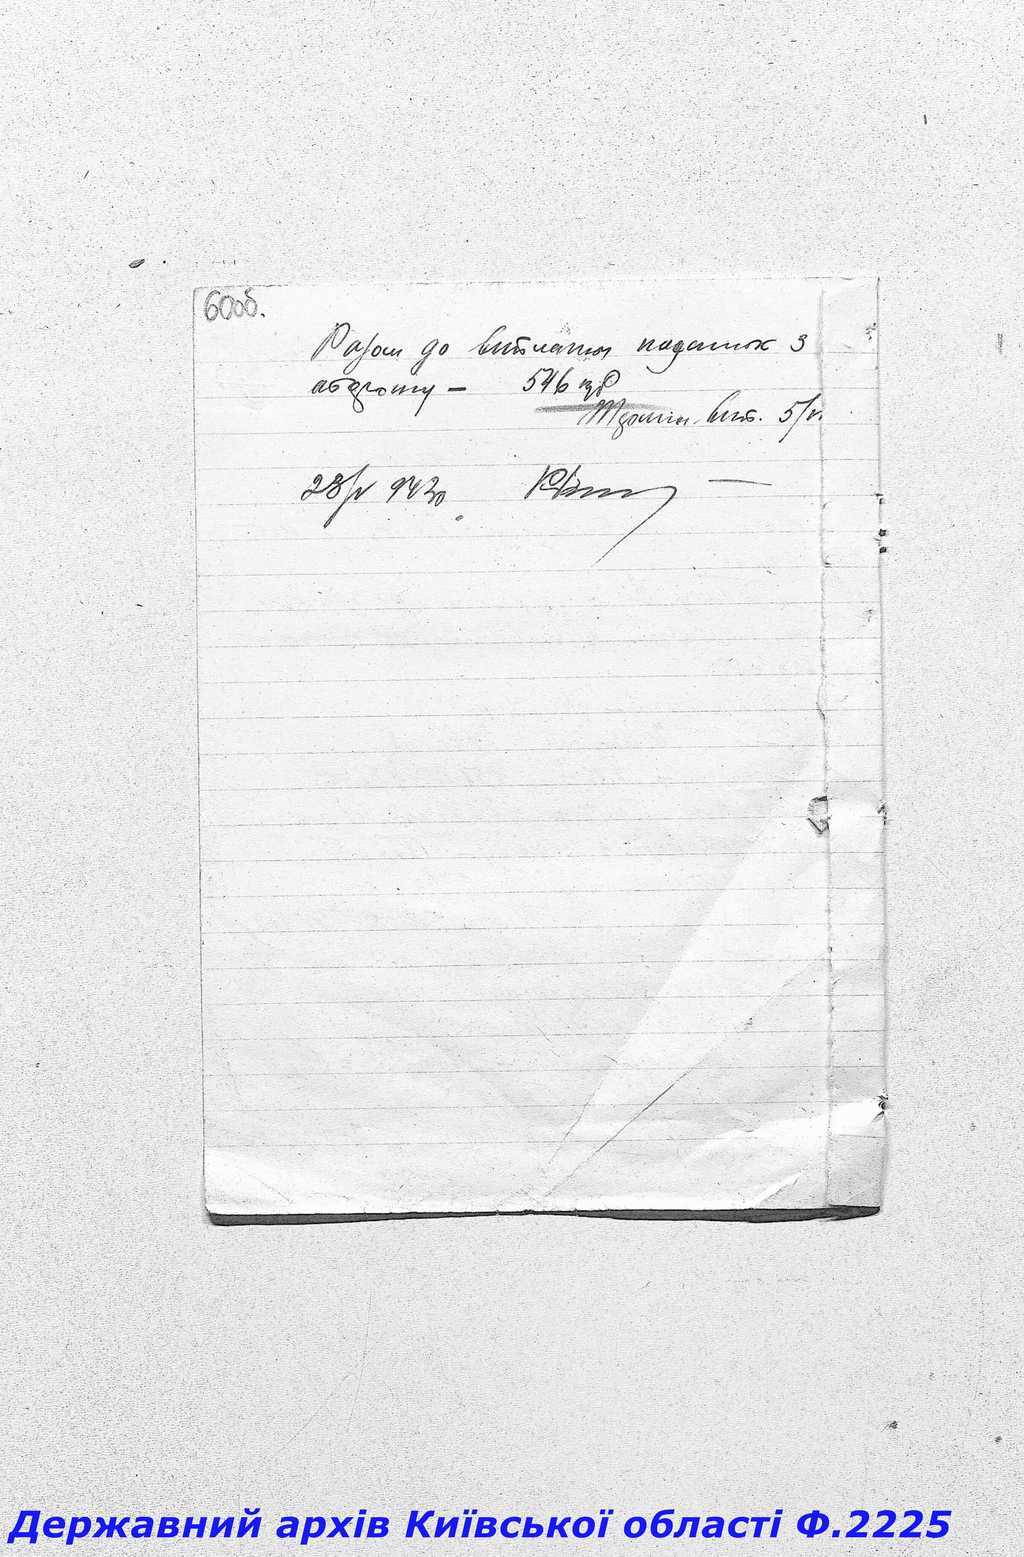 60об.
Разом до виплати податок з
обороту — 546 крб
Термін випл. 5/V.
28/IV 942р
Державний архів Київської області Ф.2225